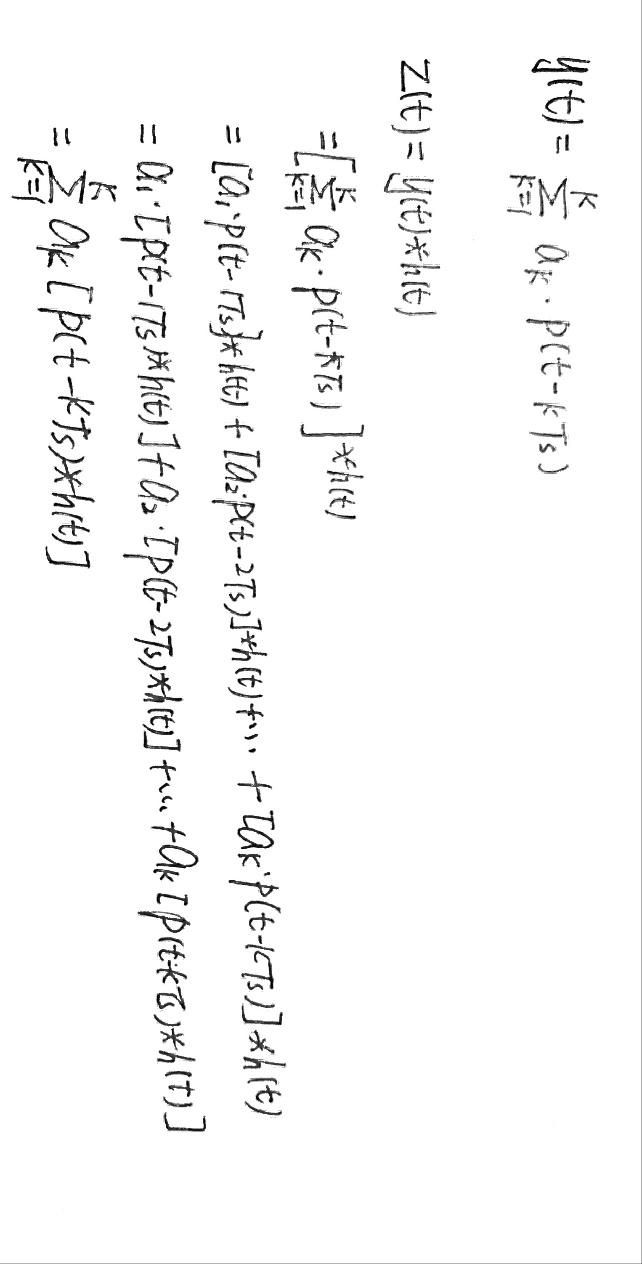 y(t) = \sum_{k=1}^{K} a_k · p(t-kTs)
z(t) = y(t)*h(t)
= [\sum_{k=1}^{K} a_k · p(t-kTs)]*h(t)
= [a_1·p(t-1Ts)]*h(t) + [a_2·p(t-2Ts)]*h(t)+... + [a_K·p(t-KTs)]*h(t)
= a_1·[p(t-1Ts)*h(t)]+a_2·[p(t-2Ts)*h(t)]+...+a_K[p(t-KTs)*h(t)]
= \sum_{k=1}^{K} a_k [p(t-kTs)*h(t)]